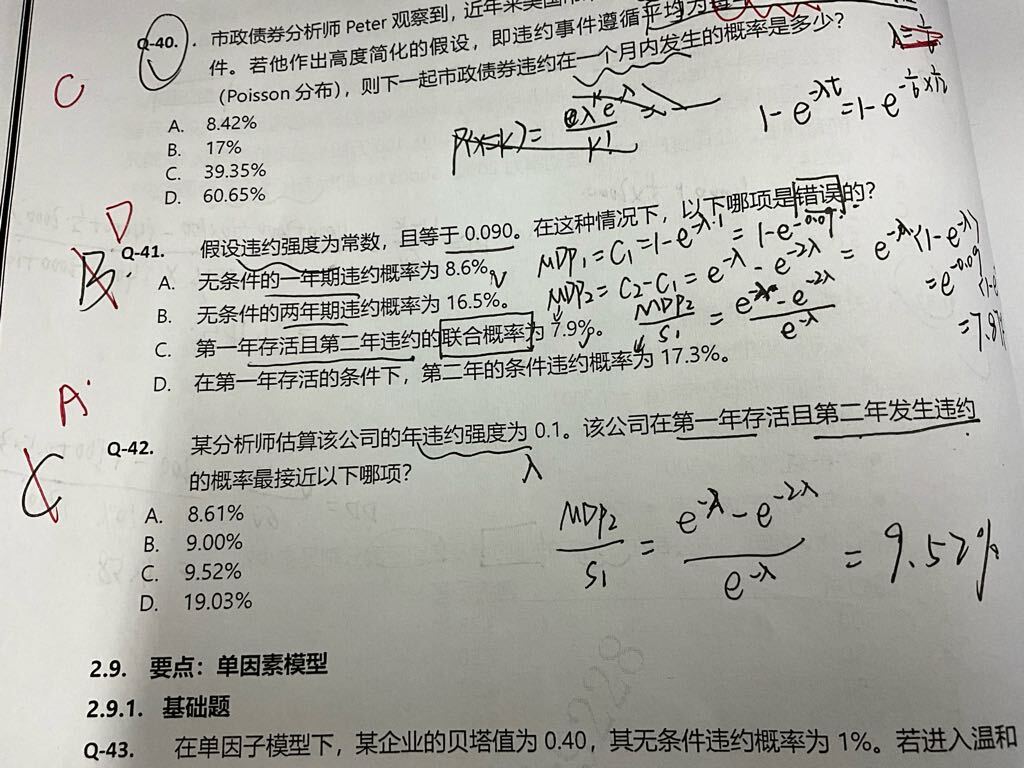 Q-40. 市政债券分析师 Peter 观察到，近年来美国市
件。若他作出高度简化的假设，即违约事件遵循平均为每
(Poisson 分布)，则下一起市政债券违约在一个月内发生的概率是多少？
A. 8.42%
B. 17%
C. 39.35%
D. 60.65%
C
P(x=k)=
K!
1-e^{-λt}=1-e^{-\frac{1}{6}×\frac{1}{12}}
Q-41. 假设违约强度为常数，且等于 0.090。在这种情况下，以下哪项是错误的？
A. 无条件的一年期违约概率为 8.6%。
B. 无条件的两年期违约概率为 16.5%。
C. 第一年存活且第二年违约的联合概率为 7.9%。
D. 在第一年存活的条件下，第二年的条件违约概率为 17.3%。
D
B
MDP₁=C₁=1-e^{-λ·1}=1-e^{-0.09}
MDP₂=C₂-C₁=e^{-λ}-e^{-2λ}=e^{-λ}(1-e^{-λ})
MDP₂/S₁=(e^{-λ}-e^{-2λ})/e^{-λ}
=e^{-0.09}
Q-42. 某分析师估算该公司的年违约强度为 0.1。该公司在第一年存活且第二年发生违约
的概率最接近以下哪项？
A. 8.61%
B. 9.00%
C. 9.52%
D. 19.03%
A
C
λ
MDP₂/S₁=(e^{-λ}-e^{-2λ})/e^{-λ}=9.52%
2.9. 要点：单因素模型
2.9.1. 基础题
Q-43. 在单因子模型下，某企业的贝塔值为 0.40，其无条件违约概率为 1%。若进入温和